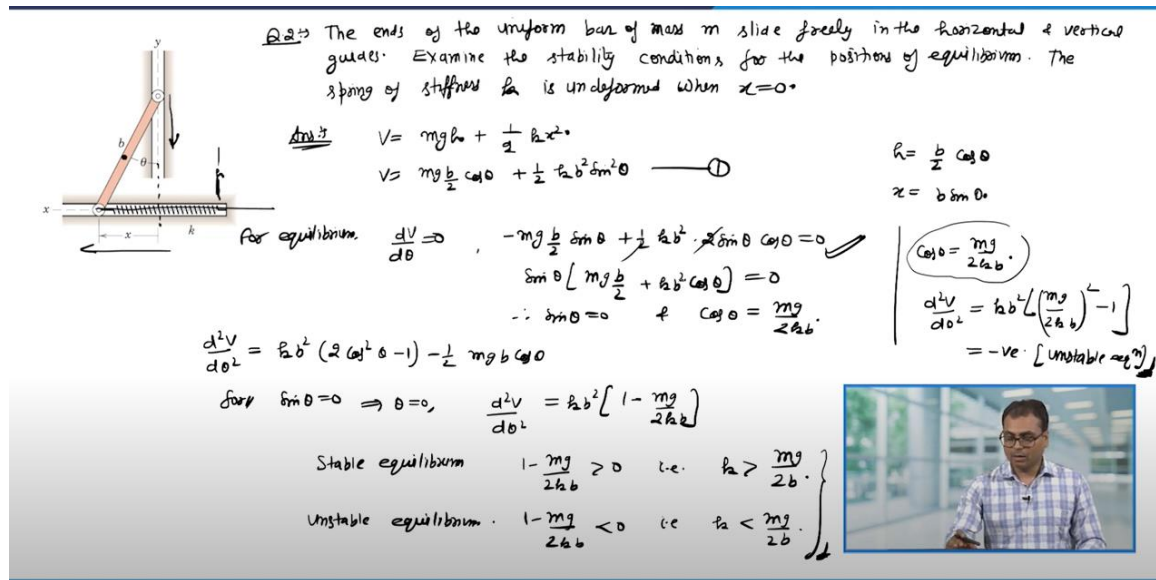 Q2:→ The ends of the uniform bar of mass m slide freely in the horizontal & vertical
guides. Examine the stability conditions for the positions of equilibrium. The
spring of stiffness k is undeformed when x=0.
Ans:→ V= mgh + 1/2 kx².
V= mg b/2 cosθ + 1/2 kb² sin²θ ——— ①
h= b/2 cosθ
x= b sinθ.
y
b
θ
x
x
k
for equilibrium. dV/dθ =0 , -mg b/2 sinθ + 1/2 kb². 2 sinθ cosθ =0
sinθ [ mg b/2 + kb² cosθ ] = 0
∴ sinθ =0 & cosθ = mg/2kb.
d²V/dθ² = kb² (2cos²θ -1) - 1/2 mgb cosθ
for sinθ =0 ⇒ θ=0, d²V/dθ² = kb² [ 1 - mg/2kb ]
Stable equilibrium 1 - mg/2kb > 0 i.e. k > mg/2b.
Unstable equilibrium. 1 - mg/2kb < 0 i.e k < mg/2b.
cosθ = mg/2kb.
d²V/dθ² = kb² [ (mg/2kb)² -1 ]
= -ve. [unstable eqⁿ]